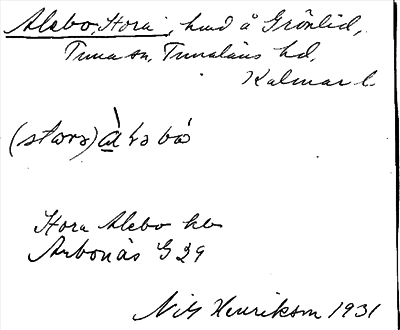 Alebo, Stora, hmd å Grönlid,
Tuna sn, Tunaläns hd,
Kalmar l.
(stora) àlɘbɷ
Stora Alebo hb
Arbonäs G 29
Nils Henrikson 1931